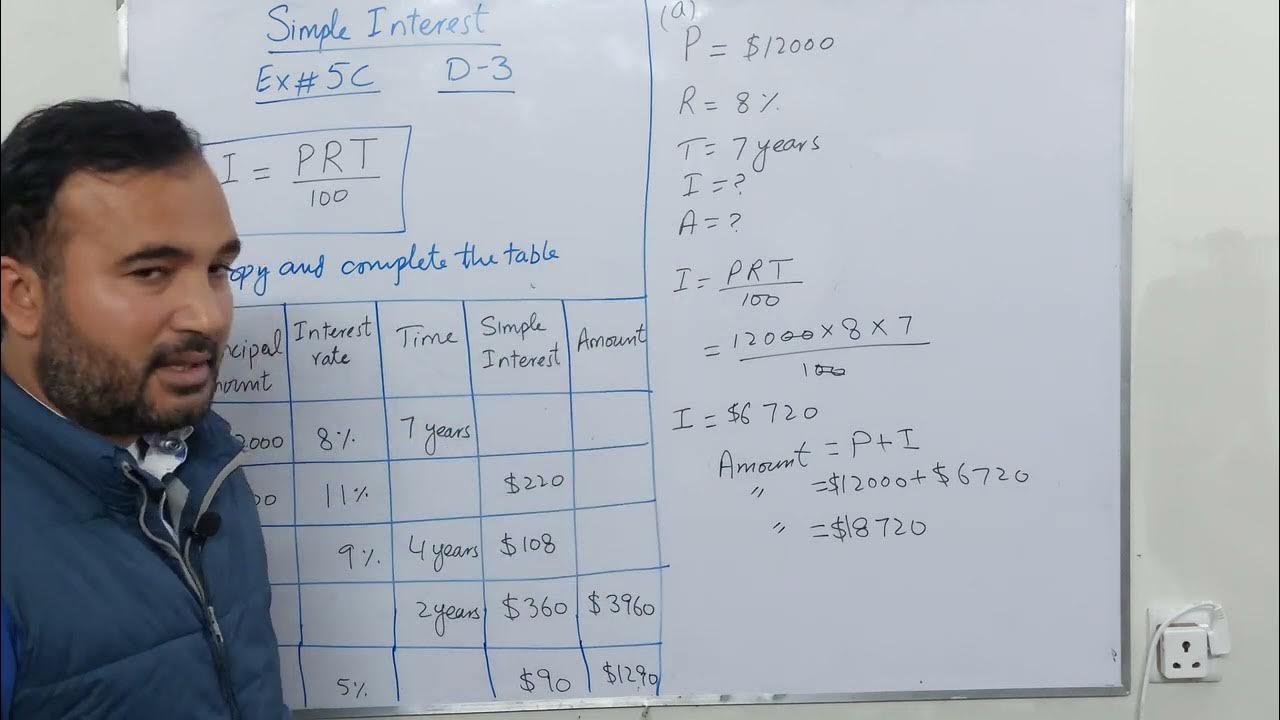 Simple Interest
Ex# 5C D-3
I = PRT
100
and complete the table
Interest rate Time Simple Interest Amount
8% 7 years
11% $220
9% 4 years $108
2 years $360 $3960
5% $90 $1290
(a)
P = $12000
R = 8%
T = 7 years
I = ?
A = ?
I = PRT
100
= 12000 × 8 × 7
100
I = $6 720
Amount = P+I
" = $12000 + $6720
" = $18720